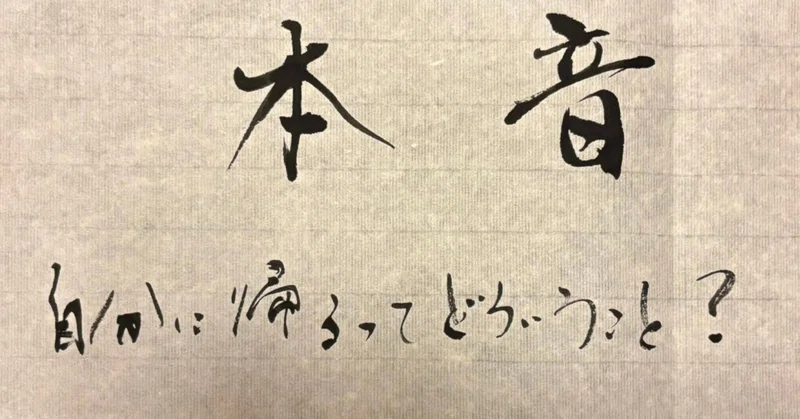 本音
自分に帰るってどういうこと？